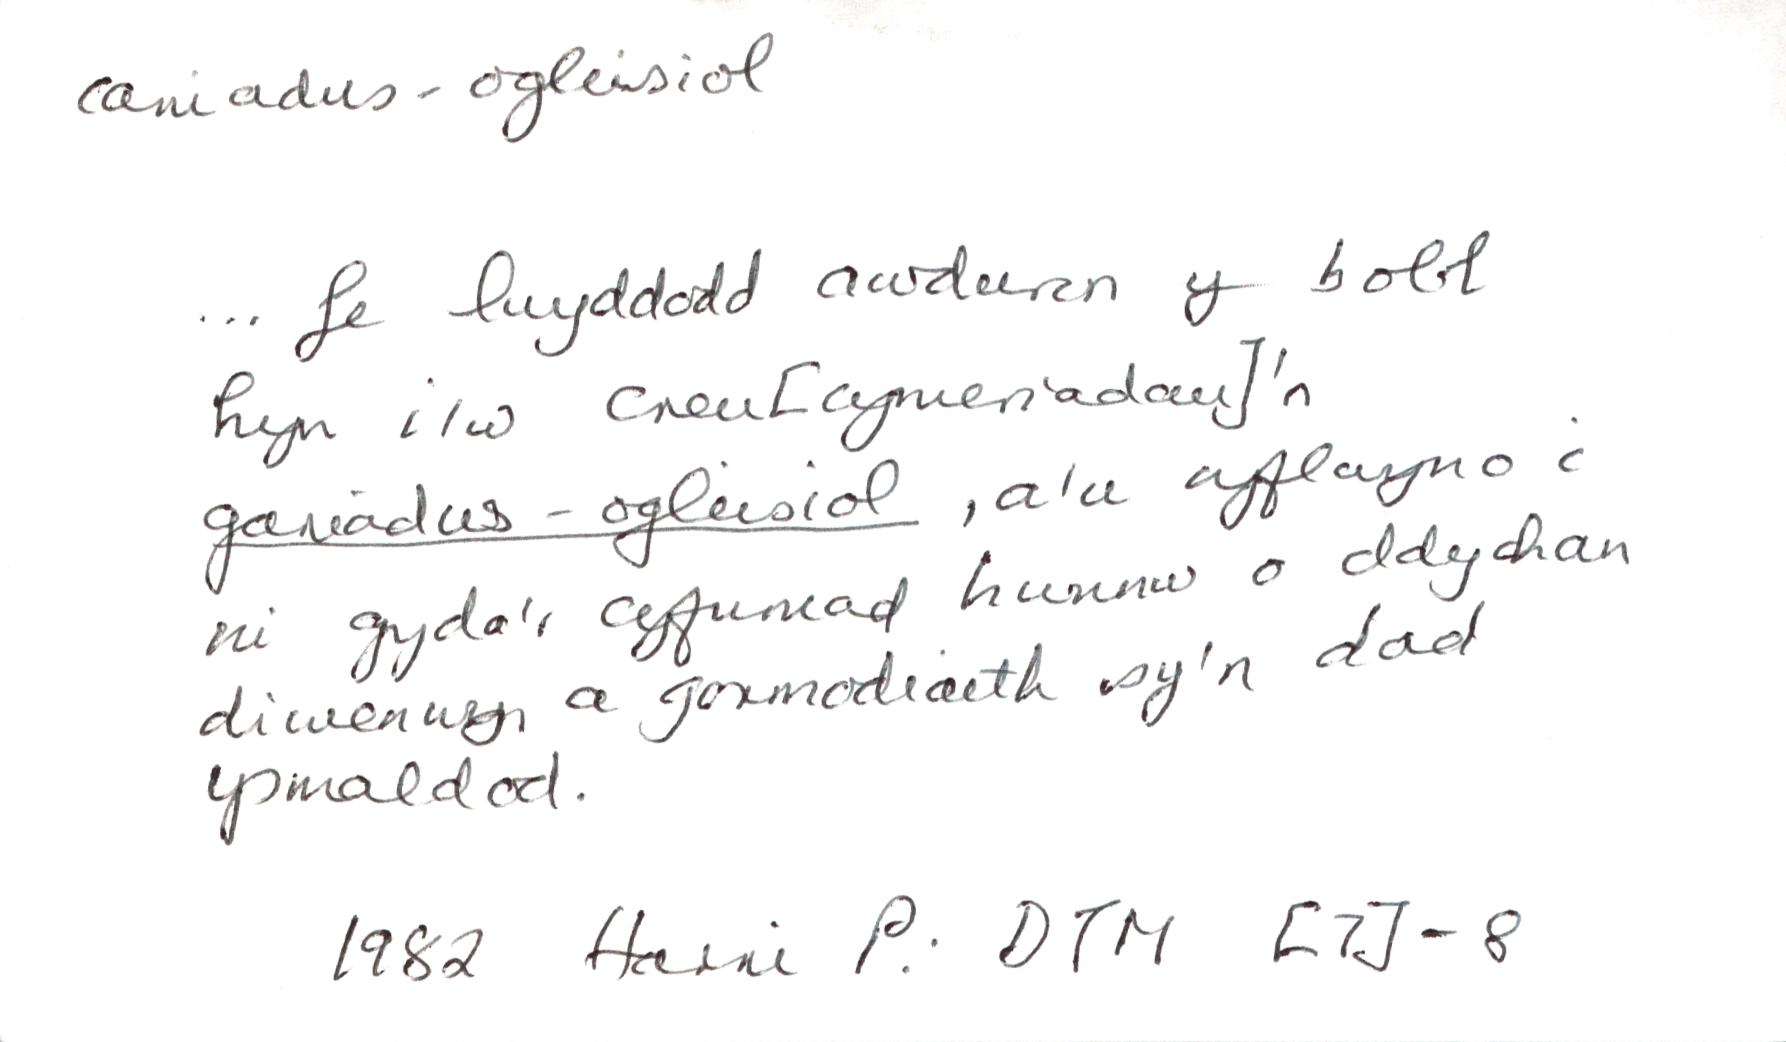 caniadus-ogleisiol
... fe lwyddodd awduron y bobl
hyn i'w creu [cymeriadau]'n
ganiadus-ogleisiol, a'u cyflwyno i
ni gyda'r cyfuniad hwnnw o ddychan
diwenwyn a gormodiaeth sy'n dad
ysmaldod.
1982 Harri P. DTM [7]-8